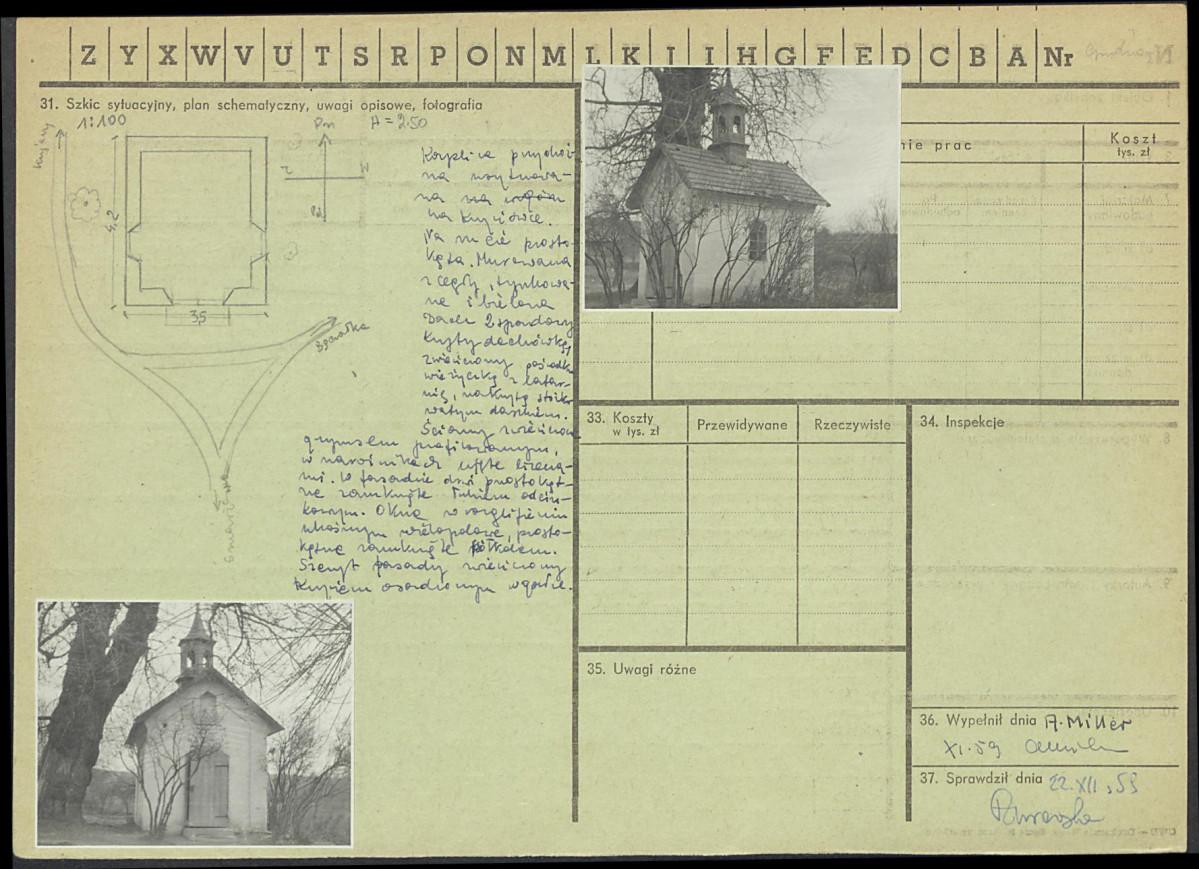 Z Y X W V U T S R P O N M L K J I H G F E D C B A Nr
31. Szkic sytuacyjny, plan schematyczny, uwagi opisowe, fotografia
1:100
H = 2.50
4,2
3,5
Kaplica przydroż
na usytuowa-
na na
Na rzucie prosto-
kąta. Murowana
z cegły, tynkowa-
na i bielona
Dach 2 spadowy
kryty dachówką,
zwieńczony pośrodku
wieżyczką z latar-
nią, nakrytą stożko
watym daszkiem.
Ściany zwieńczone
gzymsem profilowanym,
w narożnikach ujęte lizena-
mi. W fasadzie drzwi prostokąt-
ne zamknięte łukiem odcin-
kowym. Okna w rozglifieniu
ukośnym wielopolowe, prosto-
kątne zamknięte półkolem.
Szczyt fasady zwieńczony
osadzonym w gałce.
nie prac
Koszt
tys. zł
33. Koszty
w tys. zł
Przewidywane
Rzeczywiste
34. Inspekcje
35. Uwagi różne
36. Wypełnił dnia A. Miller
XI.59
37. Sprawdził dnia 22.XII.59